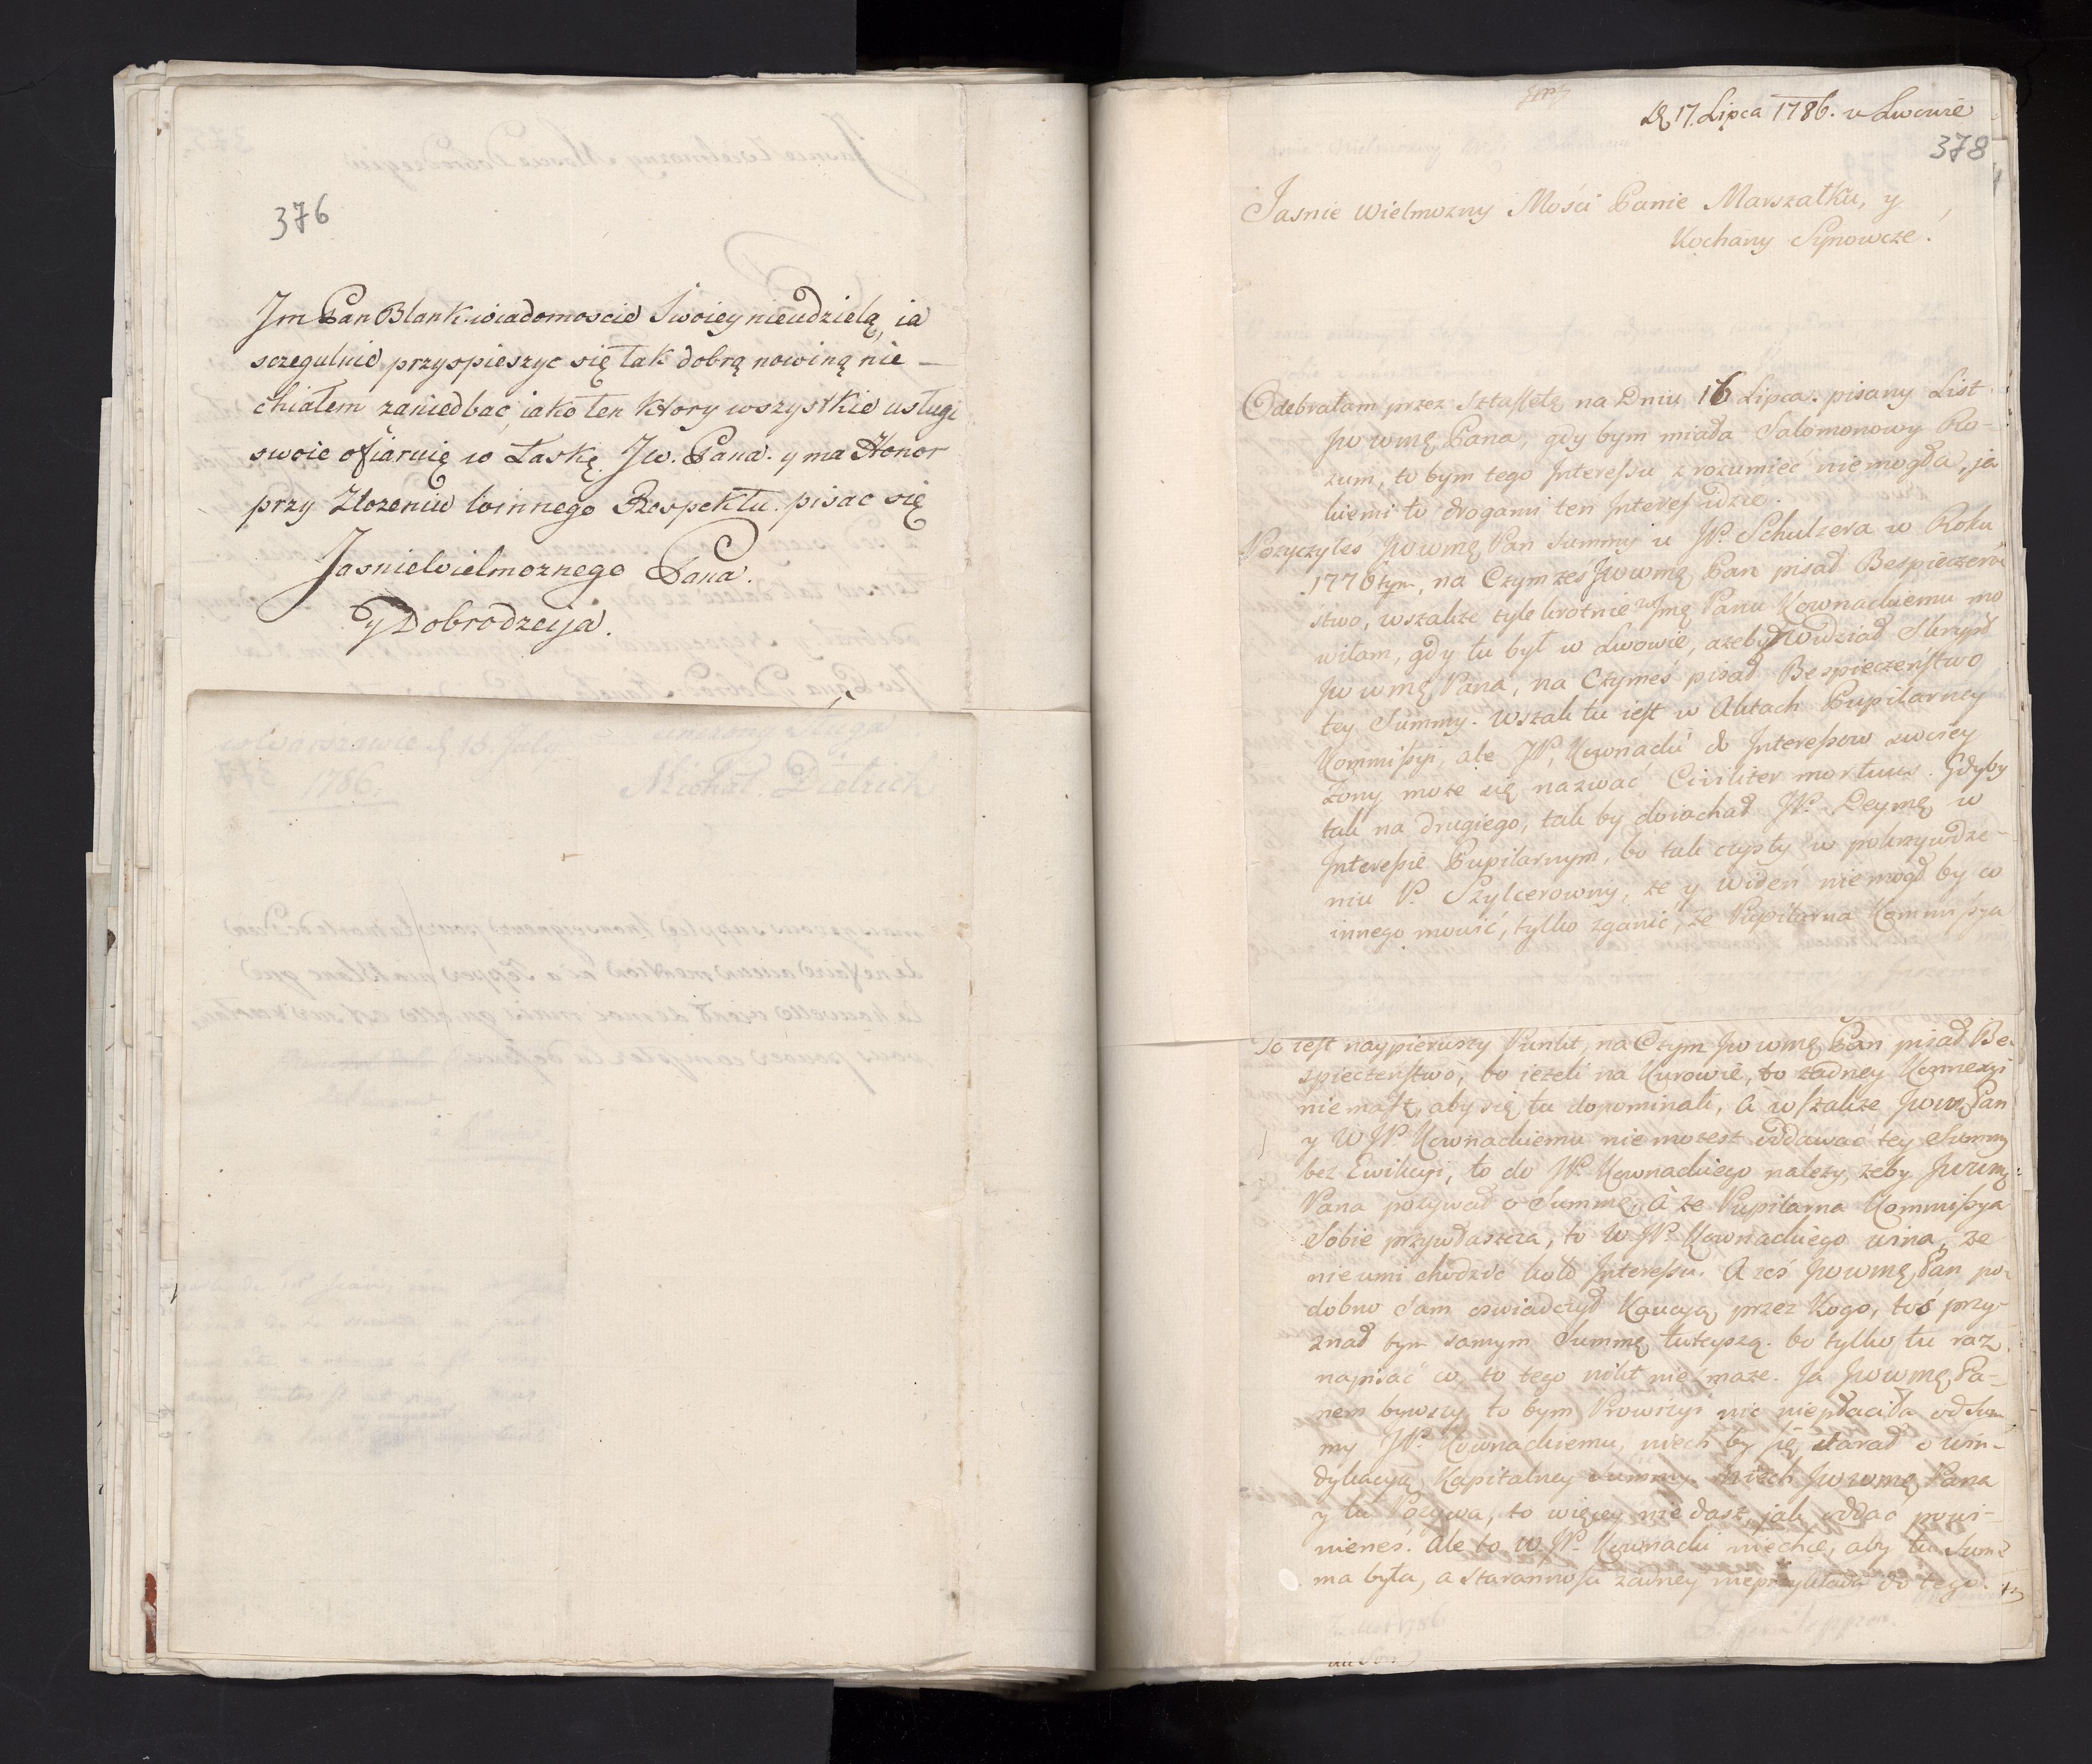 376
Jm Pan Blank wiadomoscie Swoiey nieudzielą, ia
sczegulnie przyspieszyc się tak dobrą nowiną nie
chiałem zaniedbac, iako ten ktory wszystkie usługi
swoie ofiaruię w Łaskę Jw. Pana. y ma Honor
przy Złozeniu winnego Respektu. pisac się
JasnieWielmoznego Pana.
y Dobrodzieja.
w Warszawie d 15. July
1786.
unizony Sługa
Michał Dietrich
17. Lipca 1786. w Lwowie
378
Jasnie Wielmozny Mości Panie Marszałku, y
Kochany Synowcze.
Odebrałam przez Sztafletę na Dniu 16 Lipca. pisany List
JWWmę Pana, gdy bym miała Salomonowy Ro-
zum, to bym tego Interessu zrozumieć niemogła, ja
kiemi to drogami ten Interess idzie.
Pozyczyłes JWWmę Pan summy u JP. Schultzera w Roku
1776 tym, na Czymzes JWWmę Pan pisał Bespieczeń
stwo, wszakze tyle krotnie WJmę Panu Kownackiemu mo
wiłam, gdy tu był w Lwowie, azeby Widział Skrypt
JWWmę Pana, na Czymeś pisał Bespieczeństwo
tey Summy. Wszak tu iest w Aktach Pupilarney
Kommissyi, ale JP. Kownacki do Interessow swoiey
Zony moze się nazwać Civiliter mortuus. Gdyby
tak na drugiego, tak by doiachał JP. Deymę w
Interessie Pupilarnym, bo tak czysty w pokrzywdze-
niu P. Szylcerowny, ze y Wideń niemogł by co
innego mowić, tylko zganić, ze Pupilarna Kommissya
To iest naypierwszy Punkt, na Czym JWWmę Pan pisał Be
spieczeństwo, bo iezeli na Kurowie, to zadney Konnexyi
niemasz, aby się tu dopominali, A wszakze JWWmę Pan
y WJP. Kownackiemu niemozesz oddawać tey Summy
bez Ewikcyi, to do JP. Kownackiego nalezy, zeby JWWmę
Pana pozywał o Summę, A ze Pupilarna Kommissya
Sobie przywłaszcza, to WJP. Kownackiego wina, ze
nieumi chodzić koło Interessu. A zes JWWmę Pan po-
dobno sam oswiadczył Kaucyą przez Kogo, toś przy-
znał tym samym Summę tuteyszą. bo tylko tu raz
napisać co, to tego nikt nie zmaze. Ja JWWmę Pa-
nem bywszy, to bym Prowizyi nic niepłaciła od Sum
my JP. Kownackiemu, niech by się starał o win-
dykacyą Kapitalney Summy. Niech JWWmę Pana
y tu Pozywa, to więcey nie dasz, jak oddac powi-
nieneś. Ale to WJP. Kownacki niechce, aby tu Sum
ma była, a starannosci zadney nieprzykłada do tego.